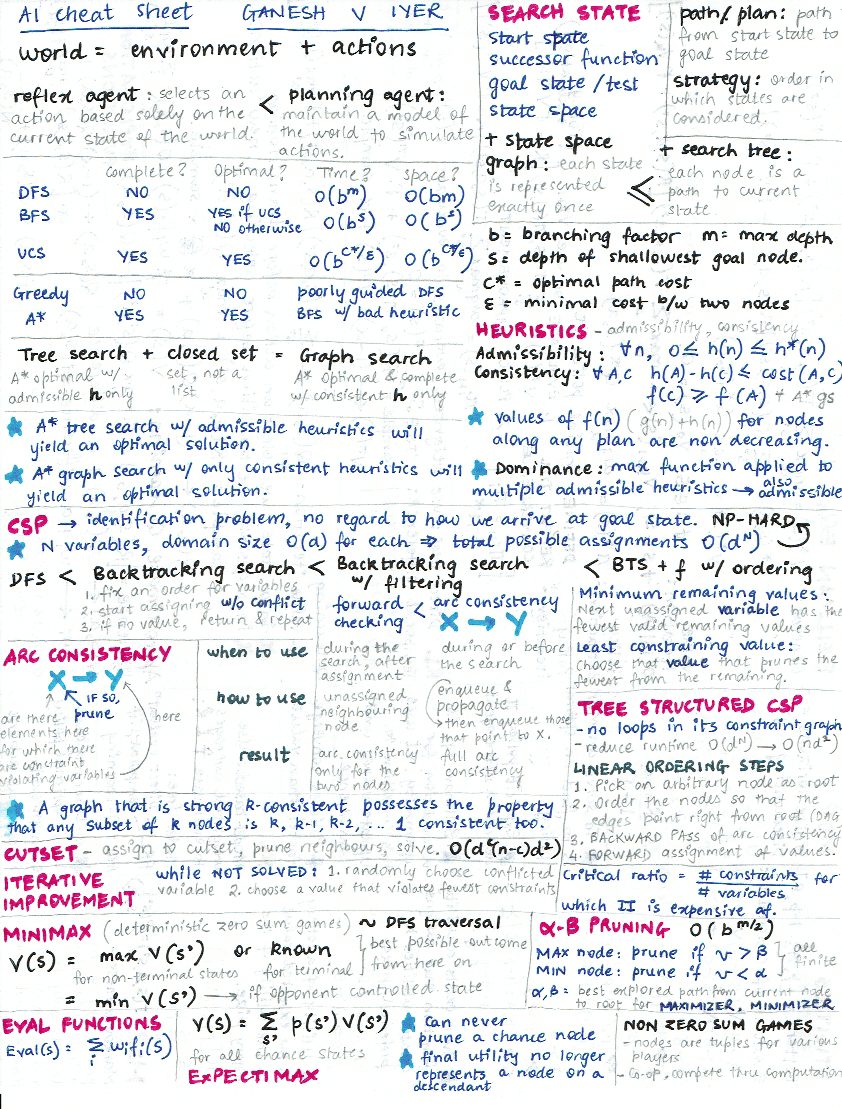 AI cheat sheet GANESH V IYER
world = environment + actions
reflex agent : selects an
action based solely on the
current state of the world.
<
planning agent:
maintain a model of
the world to simulate
actions.
complete? Optimal? Time? space?
DFS NO NO O(b^m) O(bm)
BFS YES YES if UCS O(b^s) O(b^s)
NO otherwise
UCS YES YES O(b^C*/ε) O(b^C*/ε)
Greedy NO NO poorly guided DFS
A* YES YES BFS w/ bad heuristic
Tree search + closed set = Graph search
A* optimal w/ set, not a A* Optimal & complete
admissible h only list w/ consistent h only
★ A* tree search w/ admissible heuristics will
yield an optimal solution.
★ A* graph search w/ only consistent heuristics will
yield an optimal solution.
SEARCH STATE
start spate
successor function
goal state / test
state space
path/plan: path
from start state to
goal state
strategy: order in
which states are
considered.
+ state space
graph: each state
is represented
exactly once
≤
+ search tree :
each node is a
path to current
state
b = branching factor m = max depth
s = depth of shallowest goal node.
C* = optimal path cost
ε = minimal cost b/w two nodes
HEURISTICS - admissibility, consistency
Admissibility: ∀n, 0 ≤ h(n) ≤ h*(n)
Consistency: ∀A,C h(A) - h(C) ≤ cost(A,C)
f(C) ≥ f(A) + A* gs
★ values of f(n) (g(n)+h(n)) for nodes
along any plan are non decreasing.
★ Dominance: max function applied to
multiple admissible heuristics → also admissible
CSP → identification problem, no regard to how we arrive at goal state. NP-HARD
★ N variables, domain size O(d) for each ⇒ total possible assignments O(d^N)
DFS < Backtracking search < Backtracking search w/ filtering < BTS + f w/ ordering
1. fix an order for variables
2. start assigning w/o conflict
3. if no value, return & repeat
forward checking < arc consistency
X → Y
Minimum remaining values:
Next unassigned variable has the
fewest valid remaining values
Least constraining value:
choose that value that prunes the
fewest from the remaining.
ARC CONSISTENCY
X → Y
IF SO,
prune
are there
elements here
for which there
are constraint
violating variables
here
when to use during the during or before
search, after the search
assignment
how to use unassigned enqueue &
neighbouring propagate
node →then enqueue those
that point to X.
result arc consistency full arc
only for the consistency
two nodes
TREE STRUCTURED CSP
- no loops in its constraint graph
- reduce runtime O(d^N) → O(nd²)
LINEAR ORDERING STEPS
1. Pick an arbitrary node as root
2. Order the nodes so that the
edges point right from root (DAG
3. BACKWARD PASS of arc consistency
4. FORWARD assignment of values.
★ A graph that is strong k-consistent possesses the property
that any subset of k nodes is k, k-1, k-2, ... 1 consistent too.
CUTSET - assign to cutset, prune neighbours, solve. O(d^c(n-c)d²)
ITERATIVE
IMPROVEMENT
while NOT SOLVED: 1. randomly choose conflicted
variable 2. choose a value that violates fewest constraints
Critical ratio = # constraints / # variables for
which II is expensive af.
MINIMAX (deterministic zero sum games) ~ DFS traversal
V(s) = max V(s') or known best possible outcome
for non-terminal states for terminal from here on
= min V(s') → if opponent controlled state
α-β PRUNING O(b^m/2)
MAX node: prune if v > β
MIN node: prune if v < α
all
finite
α,β = best explored path from current node
to root for MAXIMIZER, MINIMIZER
EVAL FUNCTIONS
Eval(s) = Σ wifi(s)
i
V(s) = Σ p(s')V(s')
s'
for all chance states
EXPECTIMAX
★ can never
prune a chance node
★ final utility no longer
represents a node on a
descendant
NON ZERO SUM GAMES
- nodes are tuples for various
players
- Co-op, compete thru computation